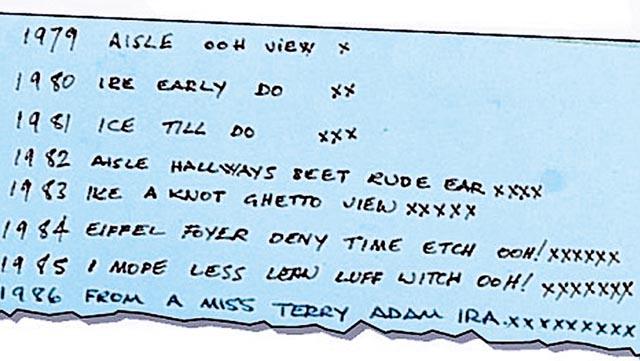 1979 AISLE OOH VIEW x
1980 IRE EARLY DO xx
1981 ICE TILL DO xxx
1982 AISLE HALLWAYS BEET RUDE EAR xxxx
1983 IKE A KNOT GHETTO VIEW xxxxx
1984 EIFFEL FOYER DENY TIME ETCH OOH! xxxxxx
1985 I MOPE LESS LEAN LUFF WITCH OOH! xxxxxxx
1986 FROM A MISS TERRY ADAM IRA. xxxxxxxxx